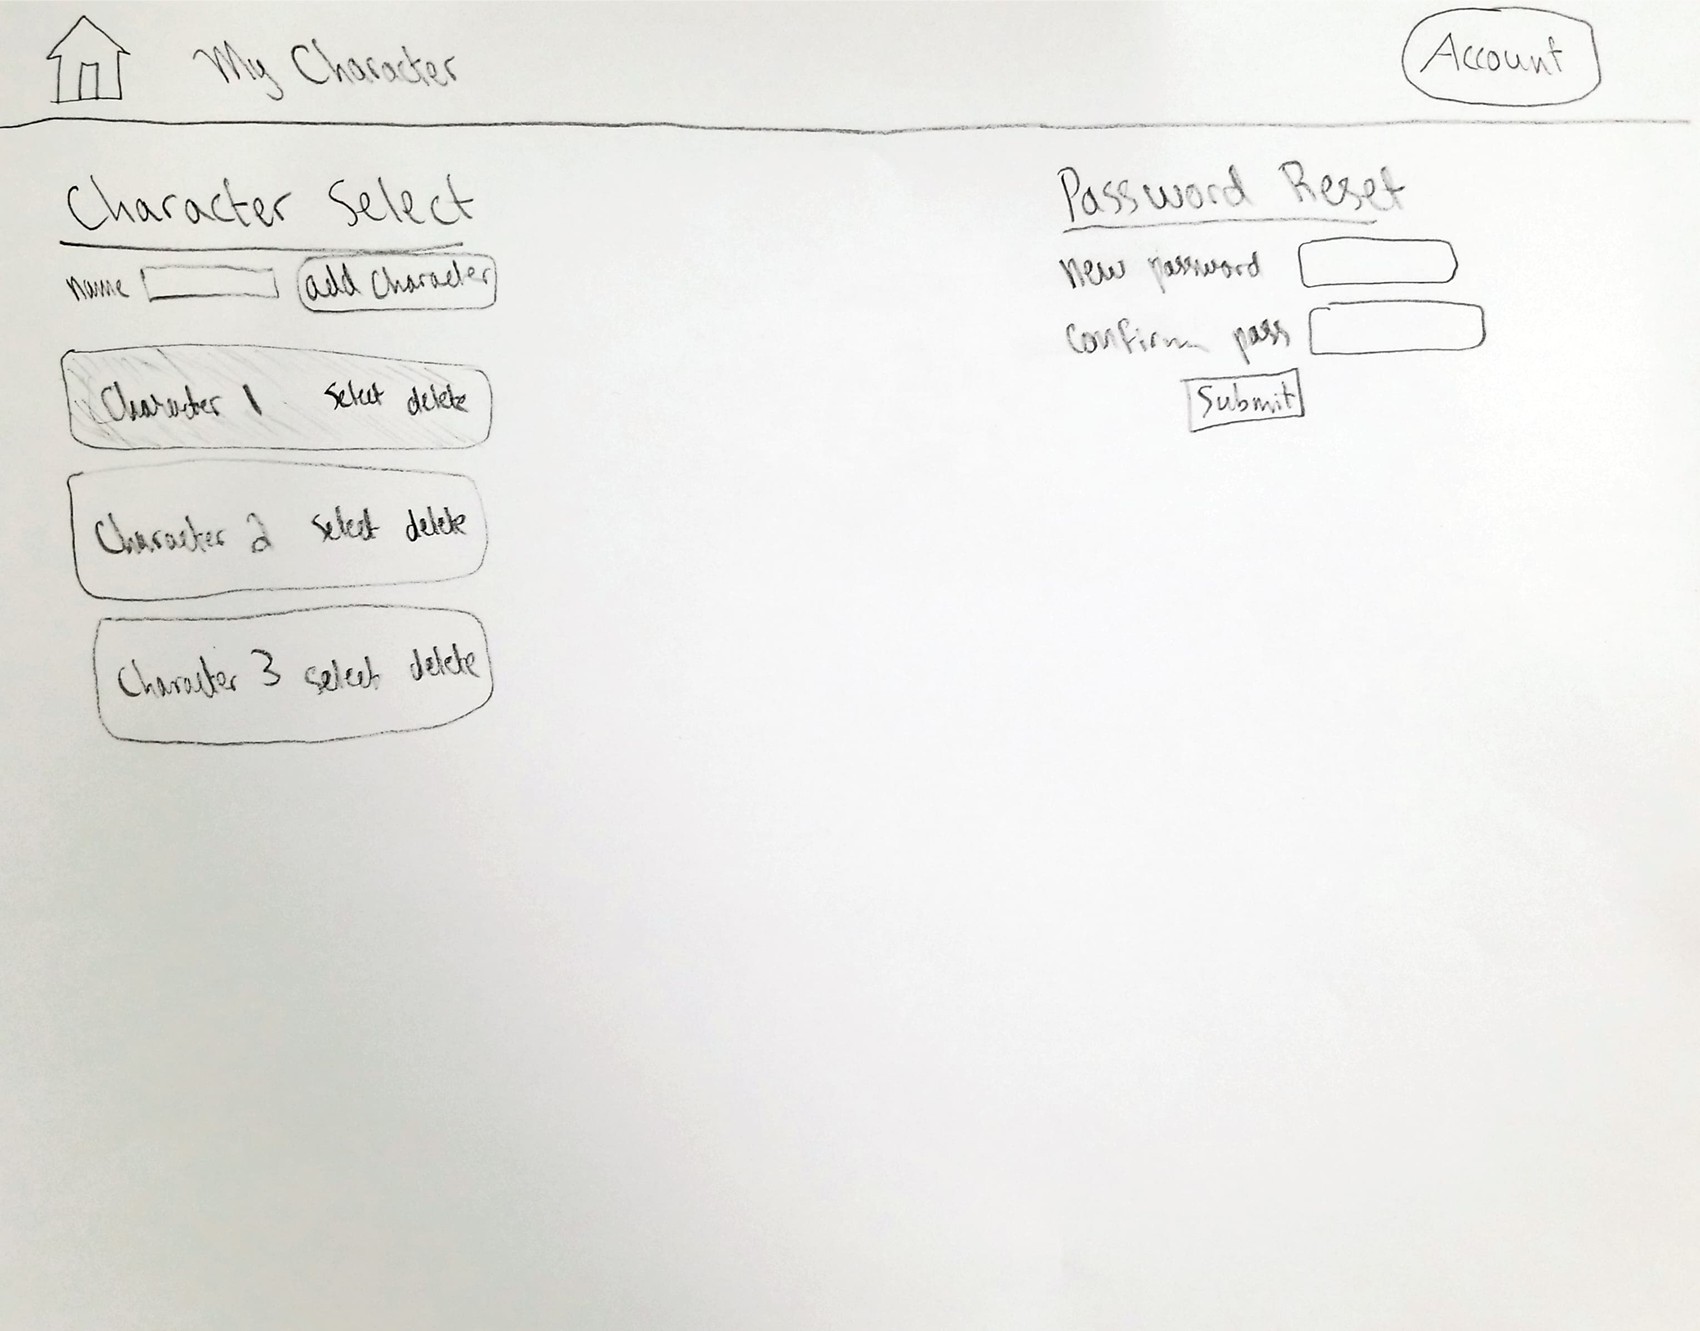 My Character
Account
Character Select
name
add Character
Character 1 Select delete
Character 2 Select delete
Character 3 select delete
Password Reset
new password
Confirm pass
Submit